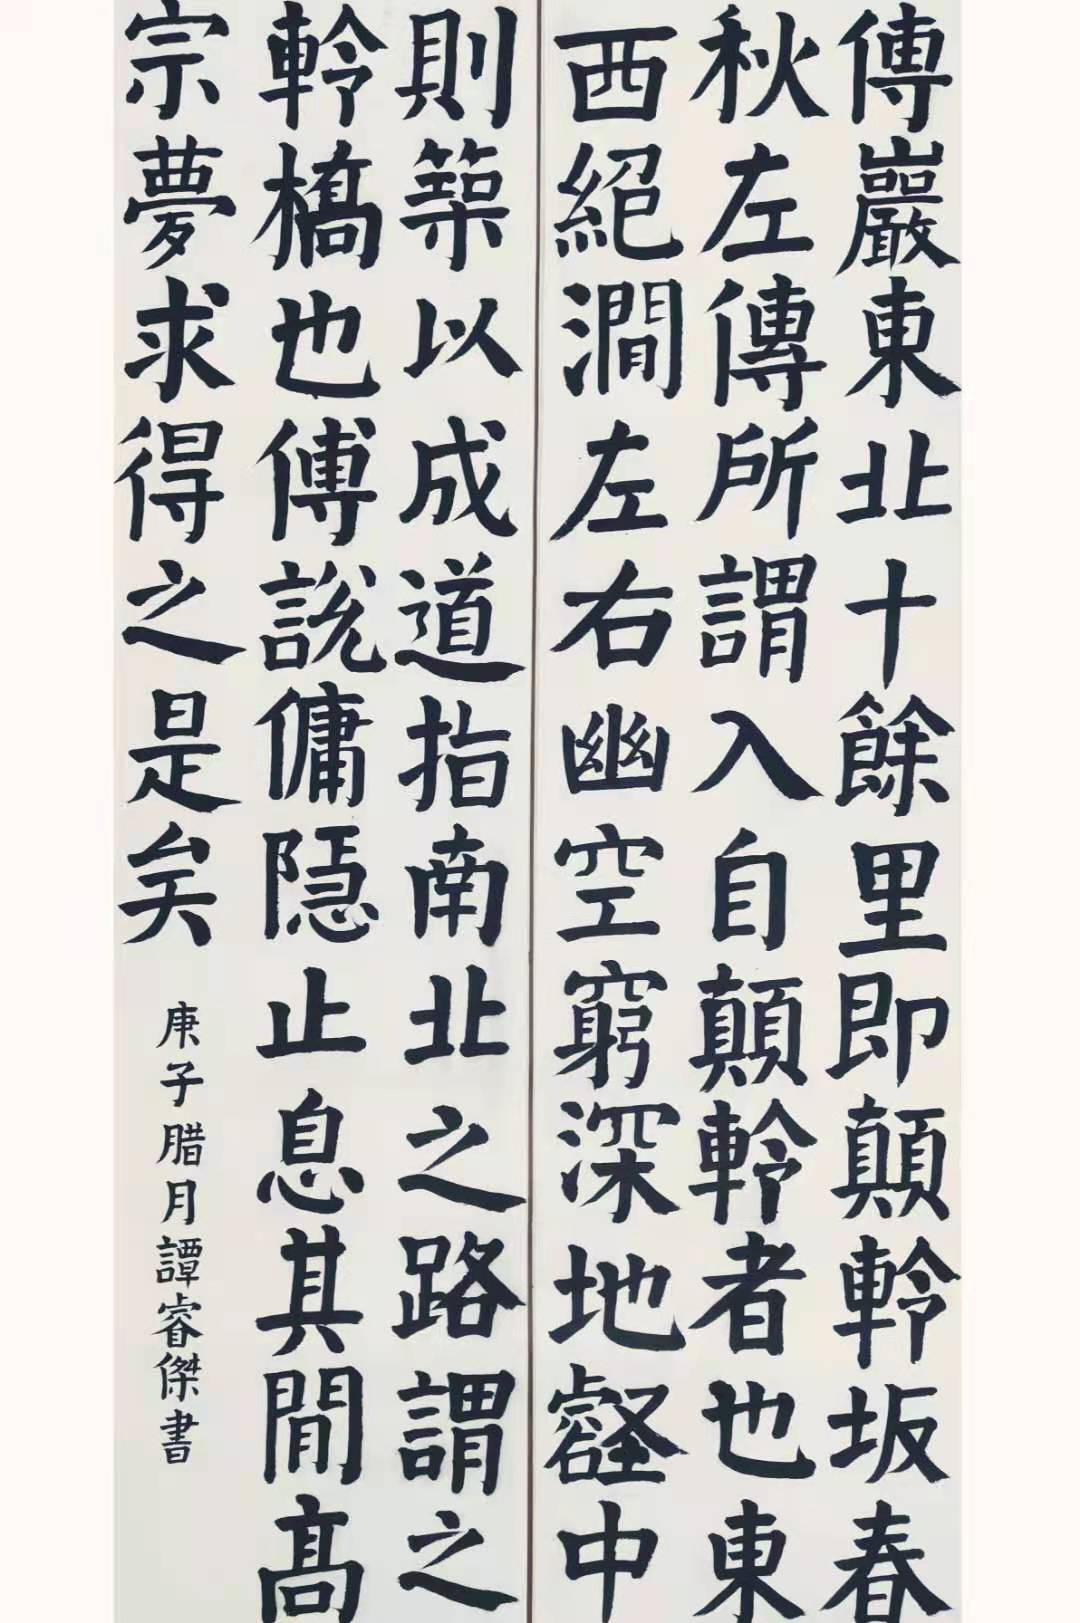 傅巖東北十餘里即顛軨坂春
秋左傳所謂入自顛軨者也東
西絕澗左右幽空窮深地壑中
則築以成道指南北之路謂之
軨橋也傅說傭隱止息其間高
宗夢求得之是矣
庚子腊月譚睿傑書